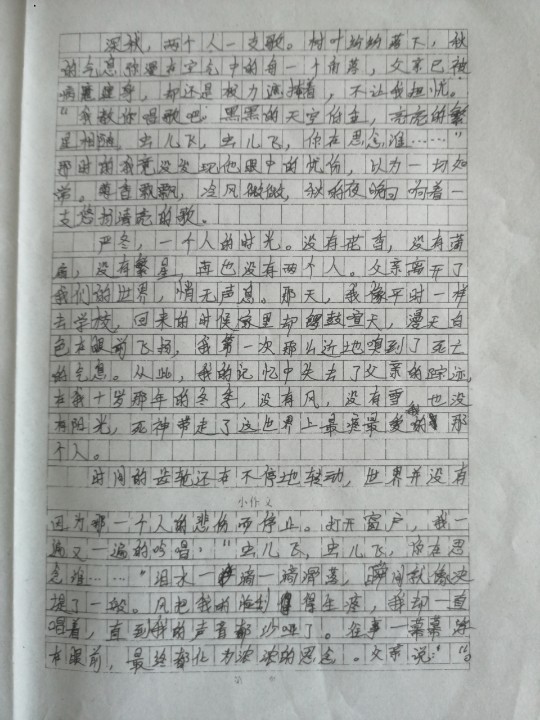 深秋，两个人一支歌。树叶纷纷落下，秋
的气息弥漫在空气中的每一个角落，父亲已被
病魔缠身，却还是极力掩饰着，不让我担忧。
“我教你唱歌吧，黑黑的天空低垂，亮亮的繁
星相随。虫儿飞，虫儿飞，你在思念谁……”
那时的我竟没发现他眼中的忧伤，以为一切如
常。 飘飘，冷风微微，秋的夜晚回响着一
支悠扬清亮的歌。
严冬，一个人的时光。没有花香，没有萧
，没有繁星，再也没有两个人。父亲离开了
我们的世界，悄无声息。那天，我像平时一样
去学校，回来的时候家里却锣鼓喧天，漫天白
色在眼前飞扬，我第一次那么近地嗅到了死亡
的气息。从此，我的记忆中失去了父亲的踪迹，
在我十岁那年的冬季，没有风，没有雪，也没
有阳光，死神带走了这世界上最疼最爱我的那
个人。
时间的齿轮还在不停地转动，世界并没有
小作文
因为那一个人的悲伤而停止。打开窗户，我一
遍又一遍的吟唱：“虫儿飞，虫儿飞，你在思
念谁……”泪水一滴一滴滑落，瞬间就像决
堤了一般。风把我的脸刮得生疼，我却一直
唱着，直到我的声音都沙哑了。往事一幕幕浮
在眼前，最终都化为浓浓的思念。父亲说：“